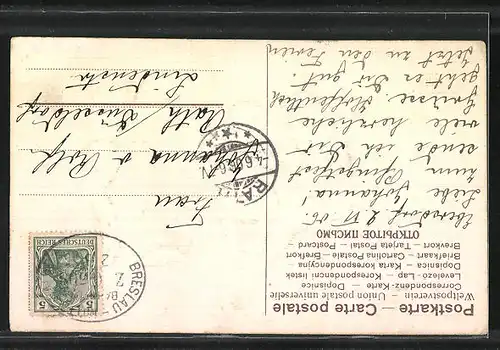 Postkarte — Carte postale
Weltpostverein — Union postale universelle
Correspondenz-Karte — Dopisnice
Levelező-Lap — Korespondenční lístek
Dopisnica — Karta korespondencyjna
Briefkaart — Cartolina postale — Brefkort
Brevkort — Tarjeta Postal — Postcard
ОТКРЫТОЕ ПИСЬМО
2. VI. 06.
Liebe Johanna!
zum Pfingstfest
sende ich dir
viele herzliche
Grüsse. Hoffentlich
geht es dir gut.
Jetzt zu den Ferien
Frau
Johanna
Rath / Düsseldorf
Lindenstr
DEUTSCHES REICH
5 5
BRESLAU
RATH
4.6.06.